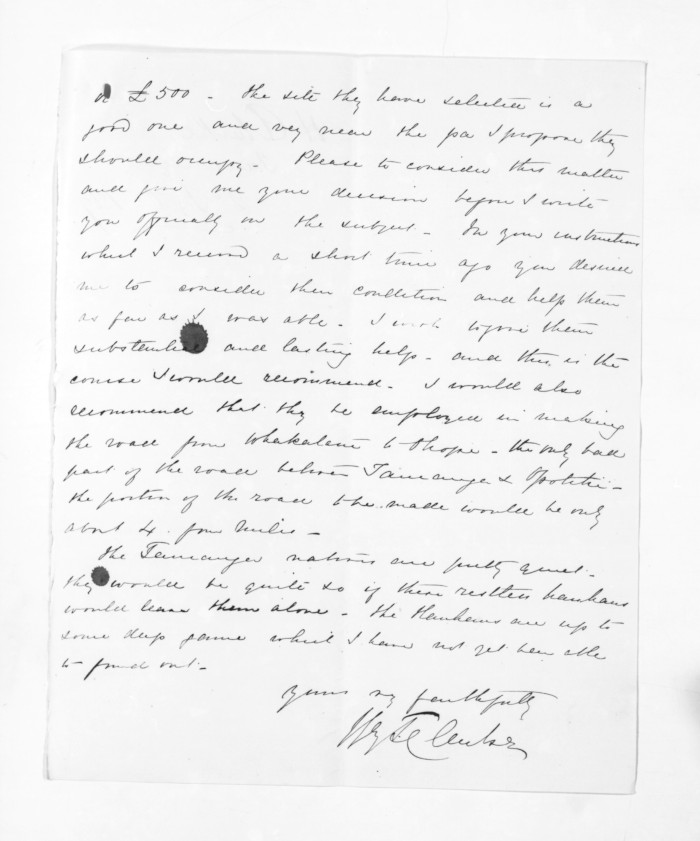 of £500 - The site they have selected is a
good one and very near the pa I propose they
should occupy - Please to consider this matter
and give me your decision before I write
you officially on the subject - In your instructions
which I received a short time ago you desired
me to consider their condition and help them
as far as I was able - I wish to give them
substantial and lasting help - and this is the
course I would recommend - I would also
recommend that they be employed in making
the road from Whakatane to Ohope - the only bad
part of the road between Tauranga & Opotiki -
the portion of the road to be made would be only
about 4 four miles -
The Tauranga natives are pretty quiet -
they would be quite so if these restless hauhaus
would leave them alone - The Hauhaus are up to
some deep game which I have not yet been able
to find out -
yours very faithfully
Clarke